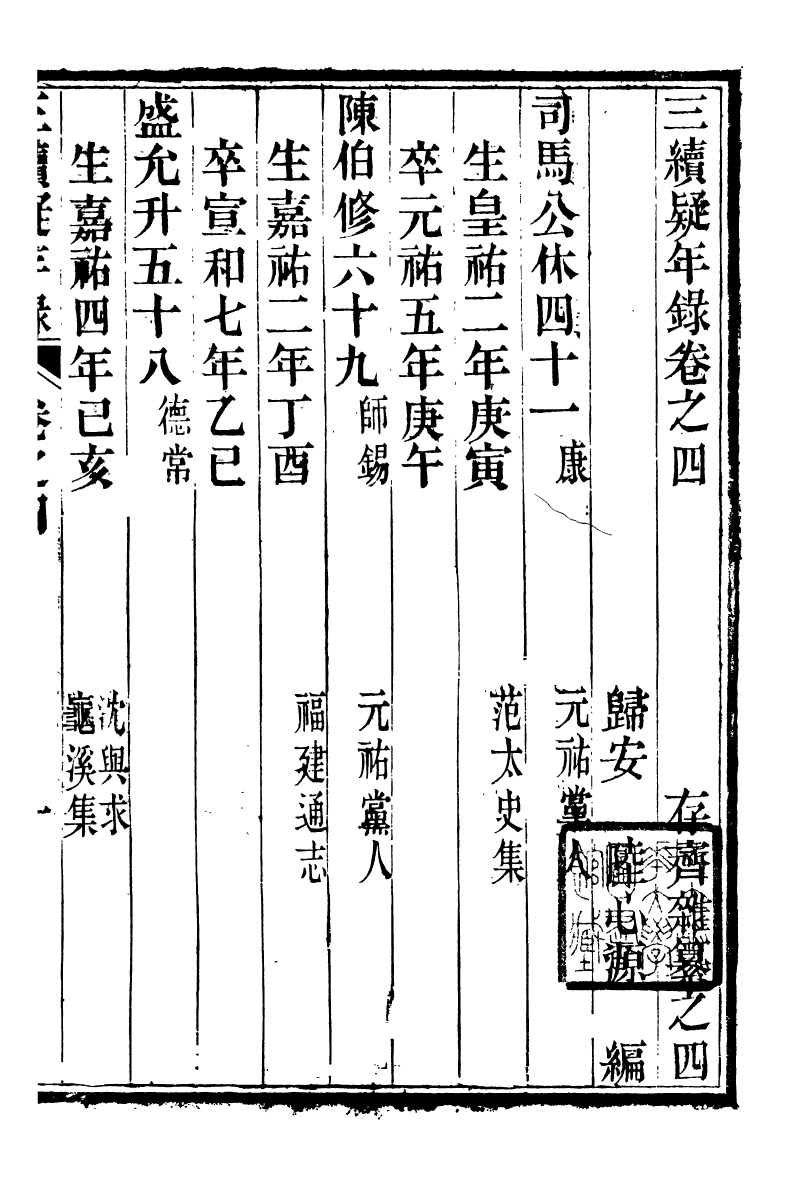 三續疑年錄卷之四　存齋雜纂之四
歸安　陸心源　編
司馬公休四十一　康　元祐黨人
生皇祐二年庚寅　范太史集
卒元祐五年庚午
陳伯修六十九　師錫　元祐黨人
生嘉祐二年丁酉　福建通志
卒宣和七年乙巳
盛允升五十八　德常
生嘉祐四年己亥　沈與求龜溪集
三續疑年錄　卷之四　一